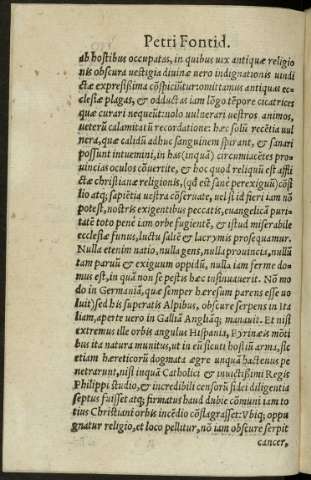 Petri Fontid.
ab hostibus occupatas, in quibus uix antiquæ religio
nis obscura uestigia diuinæ uero indignationis uindi
ctæ expreßißima cõspiciũtur: omittamus antiquas ec-
clesiæ plagas, & odductas iam lõgo tẽpore cicatrices
quæ curari nequeũt: nolo uulnerari uestros animos,
ueterũ calamitatũ recordatione: hæc solũ recẽtia uul
nera, quæ calidũ adhuc sanguinem spirant, & sanari
possunt intuemini, in has (inquã) circumiacẽtes pro-
uincias oculos cõuertite, & hoc quod reliquũ est affli
ctæ christianæ religionis, (qđ est sanè perexiguũ) cõsi
lio atq; sapiẽtia uestra cõseruate, uel si id fieri iam nõ
potest, nostris exigentibus peccatis, euangelicã puri-
tatẽ toto penè iam orbe fugientẽ, & istud miserabile
ecclesiæ funus, luctu saltẽ & lacrymis prosequamur.
Nulla etenim natio, nulla gens, nulla prouincia, nullũ
tam paruũ & exiguum oppidũ, nulla iam ferme do-
mus est, in quã non se pestis hæc insinuauerit. Nõ mo
do in Germaniã, quæ semper hæresum parens esse uo
luit) sed his superatis Alpibus, obscure serpens in Ita
liam, aperte uero in Galliã Angliãq; manauit. Et nisi
extremus ille orbis angulus Hispania, Pyrinæis mõti
bus ita natura munitus, ut in eũ sicuti hostiũ arma, sic
etiam hæreticorũ dogmata ægre unquã hactenus pe
netrarunt, nisi inquã Catholici & inuictißimi Regis
Philippi studio, & incredibili censorũ fidei diligentia
septus fuisset atq; firmatus haud dubie cõmuni iam to
tius Christiani orbis incẽdio cõflagrasset: Vbiq; oppu
gnatur religio, et loco pellitur, nõ iam obscure serpit
cancer,